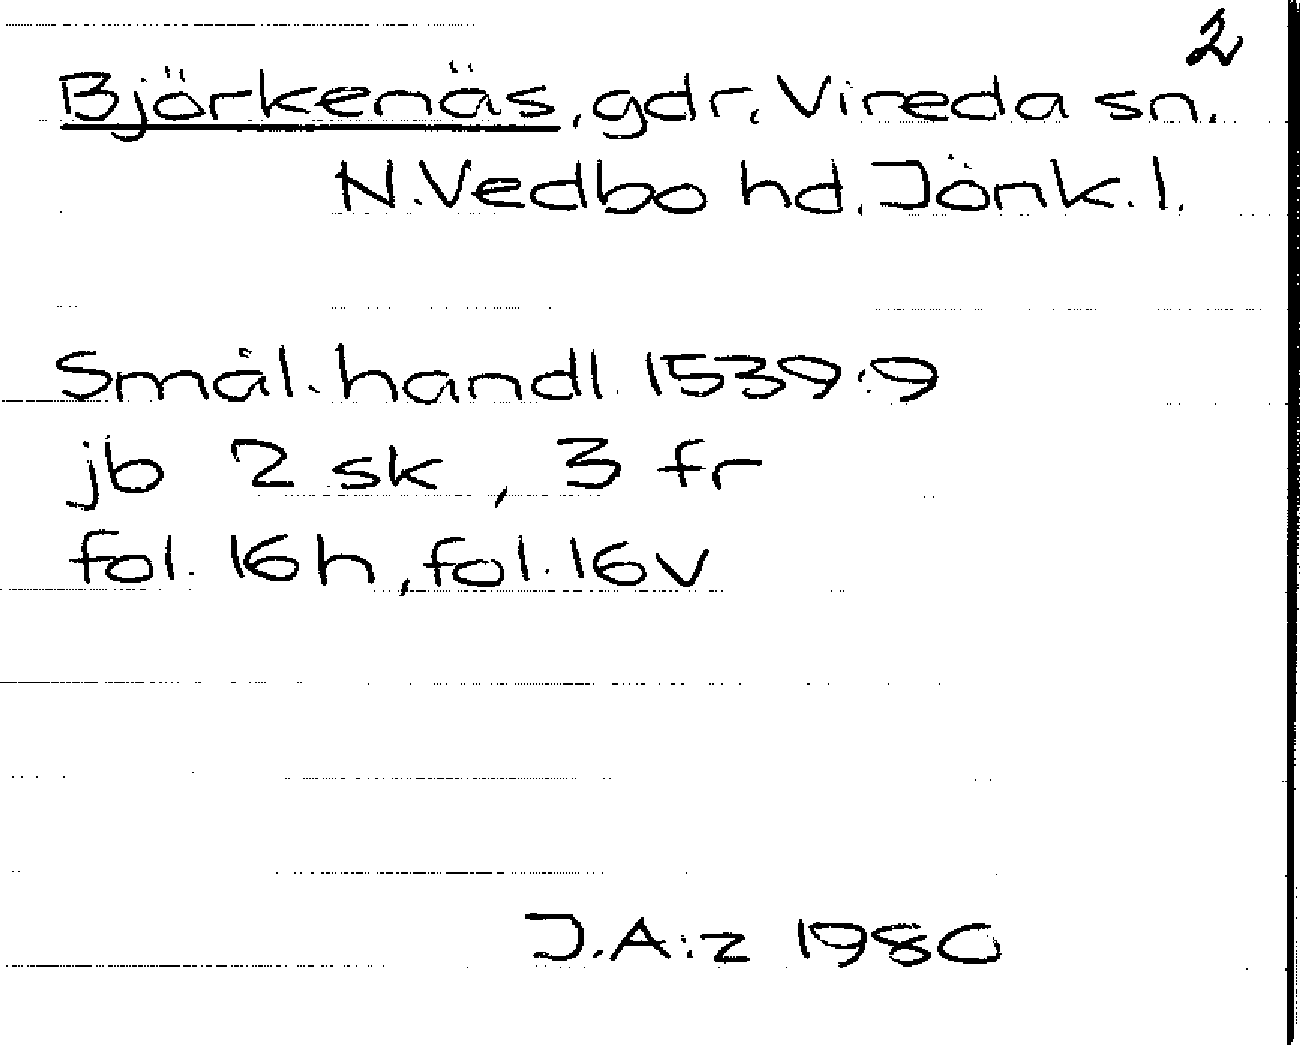 2
Björkenäs, gdr, Vireda sn.
N. Vedbo hd. Jönk. l.
Smål. handl. 1539:9
jb 2 sk, 3 fr
fol. 16h, fol. 16v
J.A:z 1980